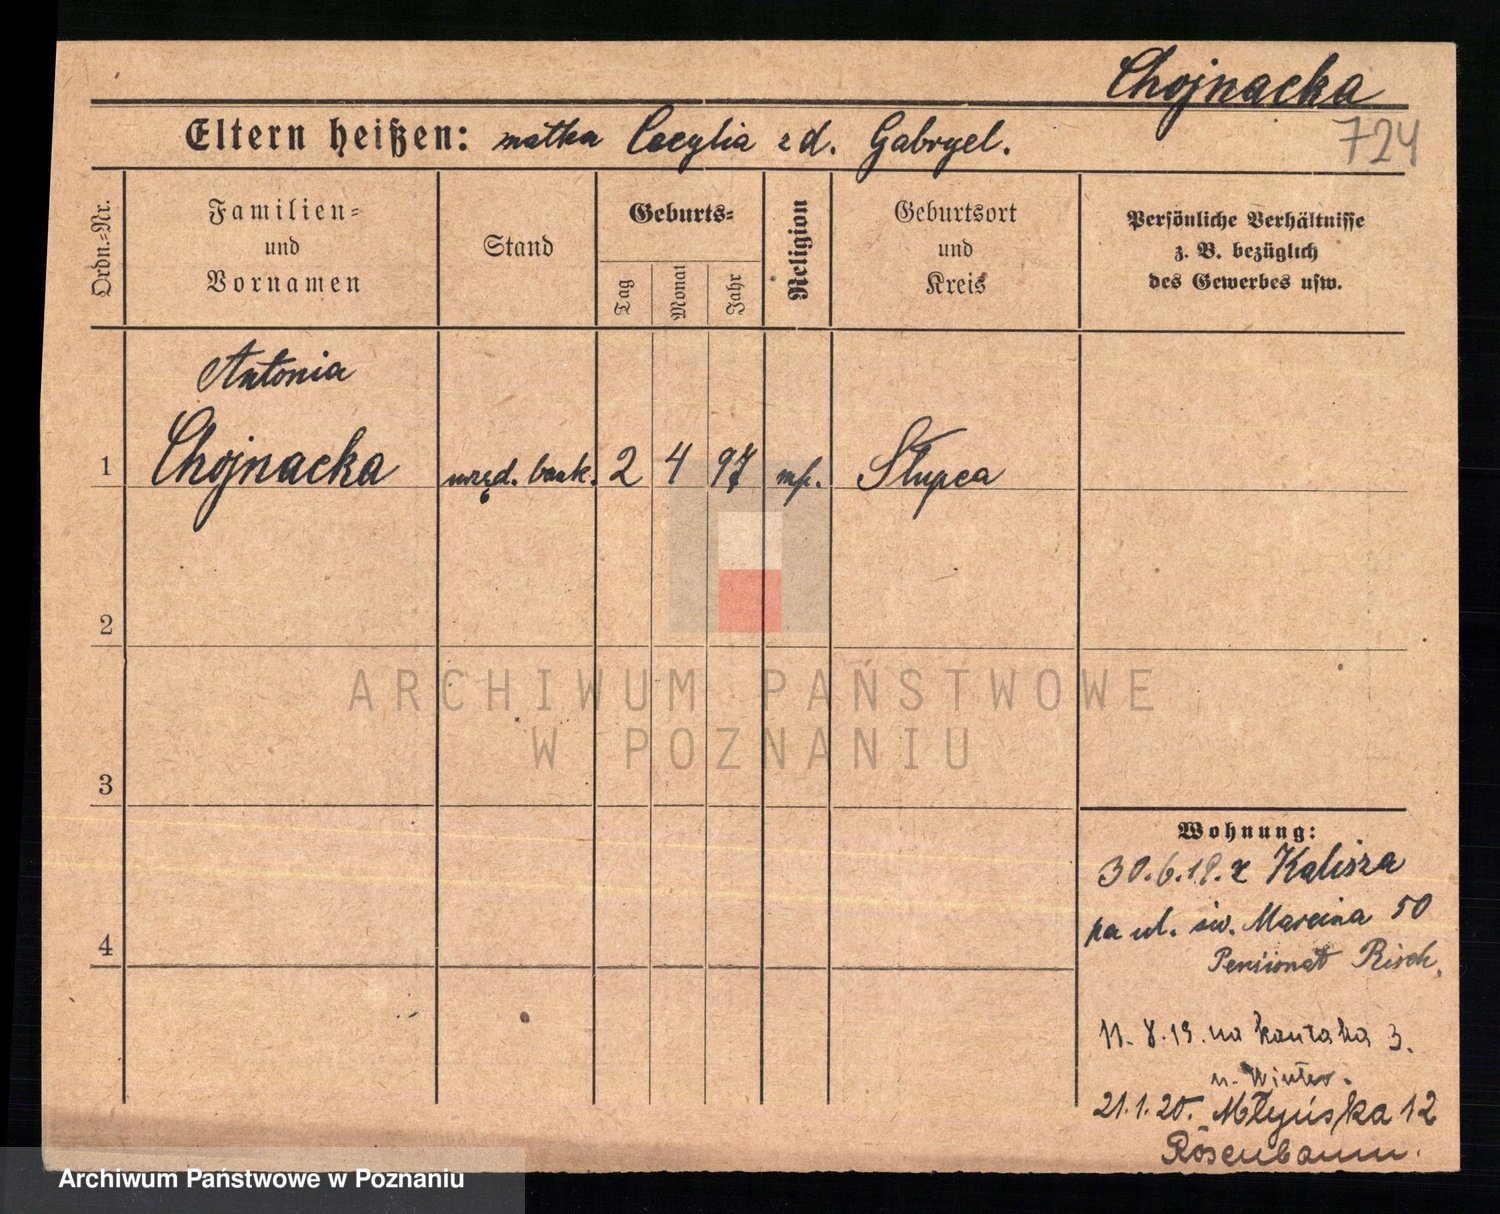 Chojnacka
724
Eltern heißen: matka Cecylia zd. Gabryel.
Ordn.=Nr.
Familien=
und
Vornamen
Stand
Geburts=
Tag
Monat
Jahr
Religion
Geburtsort
und
Kreis
Persönliche Verhältnisse
z. B. bezüglich
des Gewerbes usw.
Antonia
1 Chojnacka urzęd. bank. 2 4 97 Słupca
2
3
4
ARCHIWUM PAŃSTWOWE
W POZNANIU
Wohnung:
30.6.19. z Kalisza
na ul. św. Marcina 50
Pensionat Risch.
11.8.19. na kantaka 3.
u. Winter.
21.1.20. Młyńska 12
Rosenbaum.
Archiwum Państwowe w Poznaniu